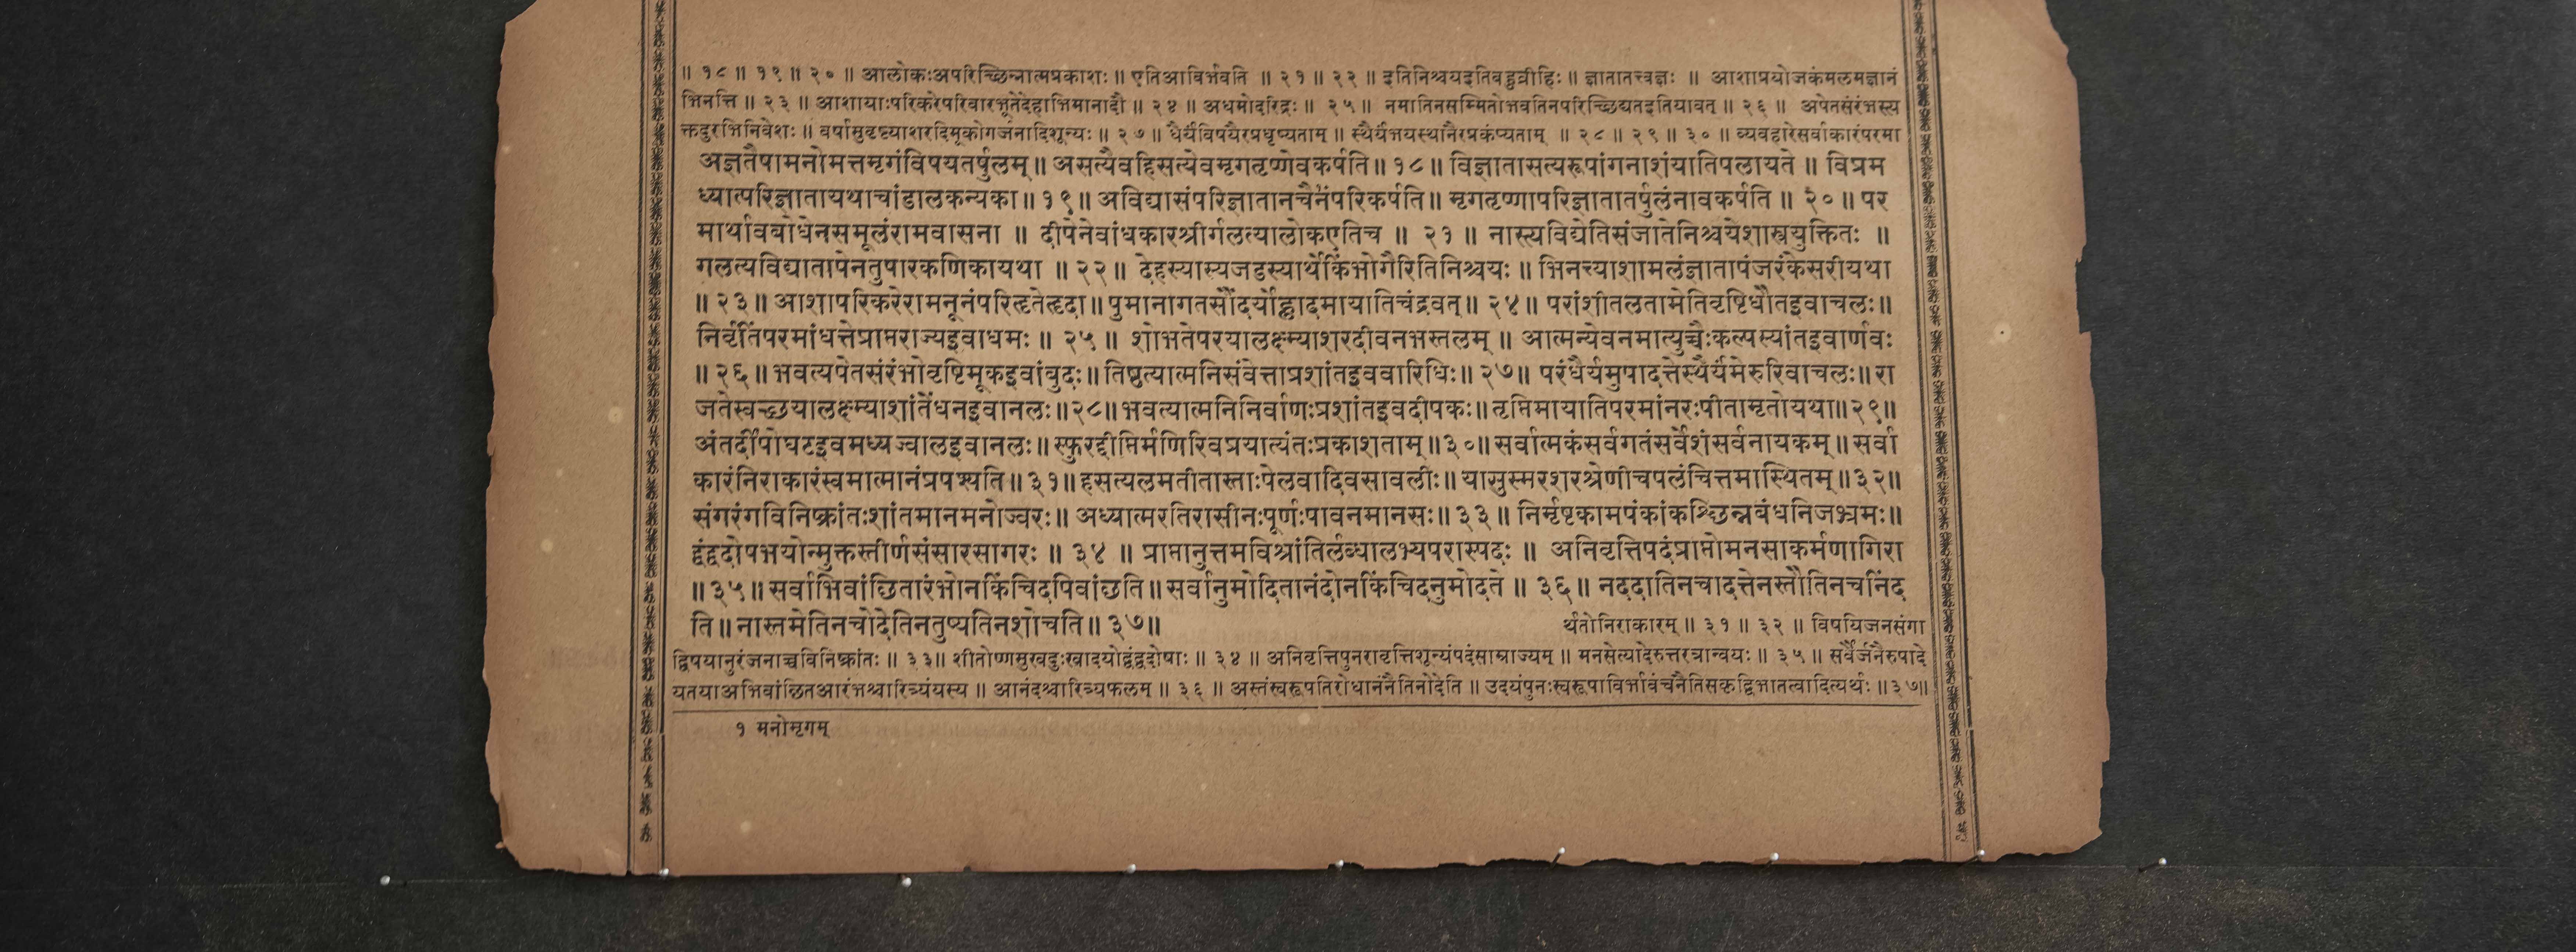 ॥ १८ ॥ १९ ॥ २० ॥ आलोकःअपरिच्छिन्नात्मप्रकाशः ॥ एतिआविर्भवति ॥ २१ ॥ २२ ॥ इतिनिश्चयइतिबहुव्रीहिः ॥ ज्ञातातत्त्वज्ञः ॥ आशाप्रयोजकंमलमज्ञानं
भिनत्ति ॥ २३ ॥ आशायाःपरिकरेपरिवारभूतेदेहाभिमानादौ ॥ २४ ॥ अधमोदरिद्रः ॥ २५ ॥ नमातिनसम्मितोभवतिनपरिच्छिद्यतइतियावत् ॥ २६ ॥ अपेतसंरंभस्त्य
क्तदुरभिनिवेशः ॥ वर्षासुवृष्ट्याशरदिमूकोगर्जनादिशून्यः ॥ २७ ॥ धैर्यंविषयैरप्रधृष्यताम् ॥ स्थैर्यंभयस्थानैरप्रकंप्यताम् ॥ २८ ॥ २९ ॥ ३० ॥ व्यवहारेसर्वाकारंपरमा
अज्ञतैषामनोमत्तमृगंविषयतर्षुलम् ॥ असत्यैवहिसत्येवमृगतृष्णेवकर्षति ॥ १८ ॥ विज्ञातासत्यरूपांगनाशंयातिपलायते ॥ विप्रम
ध्यात्परिज्ञातायथाचांडालकन्यका ॥ १९ ॥ अविद्यासंपरिज्ञातानचैनंपरिकर्षति ॥ मृगतृष्णापरिज्ञातातर्षुलंनावकर्षति ॥ २० ॥ पर
मार्थावबोधेनसमूलंरामवासना ॥ दीपेनेवांधकारश्रीर्गलत्यालोकएतिच ॥ २१ ॥ नास्त्यविद्येतिसंजातेनिश्चयेशास्त्रयुक्तितः ॥
गलत्यविद्यातापेनतुषारकणिकायथा ॥ २२ ॥ देहस्यास्यजडस्यार्थेकिंभोगैरितिनिश्चयः ॥ भिनत्त्याशामलंज्ञातापंजरंकेसरीयथा
॥ २३ ॥ आशापरिकरेरामनूनंपरिहृतेहृदा ॥ पुमानागतसौंदर्योह्लादमायातिचंद्रवत् ॥ २४ ॥ परांशीतलतामेतिवृष्टिधौतइवाचलः ॥
निर्वृतिंपरमांधत्तेप्राप्तराज्यइवाधमः ॥ २५ ॥ शोभतेपरयालक्ष्म्याशरदीवनभस्तलम् ॥ आत्मन्येवनमात्युच्चैःकल्पस्यांतइवार्णवः
॥ २६ ॥ भवत्यपेतसंरंभोवृष्टिमूकइवांबुदः ॥ तिष्ठत्यात्मनिसंवेत्ताप्रशांतइववारिधिः ॥ २७ ॥ परंधैर्यमुपादत्तेस्थैर्यंमेरुरिवाचलः ॥ रा
जतेस्वच्छयालक्ष्म्याशांतेंधनइवानलः ॥ २८ ॥ भवत्यात्मनिनिर्वाणःप्रशांतइवदीपकः ॥ तृप्तिमायातिपरमांनरःपीतामृतोयथा ॥ २९ ॥
अंतर्दीपोघटइवमध्यज्वालइवानलः ॥ स्फुरद्दीप्तिर्मणिरिवप्रयात्यंतःप्रकाशताम् ॥ ३० ॥ सर्वात्मकंसर्वगतंसर्वेशंसर्वनायकम् ॥ सर्वा
कारंनिराकारंस्वमात्मानंप्रपश्यति ॥ ३१ ॥ हसत्यलमतीतास्ताःपेलवादिवसावलीः ॥ यासुस्मरशरश्रेणीचपलंचित्तमास्थितम् ॥ ३२ ॥
संगरंगविनिष्क्रांतःशांतमानमनोज्वरः ॥ अध्यात्मरतिरासीनःपूर्णःपावनमानसः ॥ ३३ ॥ निर्मृष्टकामपंकांकश्छिन्नबंधनिजभ्रमः ॥
द्वंद्वदोषभयोन्मुक्तस्तीर्णसंसारसागरः ॥ ३४ ॥ प्राप्तानुत्तमविश्रांतिर्लब्धालभ्यपरास्पदः ॥ अनिवृत्तिपदंप्राप्तोमनसाकर्मणागिरा
॥ ३५ ॥ सर्वाभिवांछितारंभोनकिंचिदपिवांछति ॥ सर्वानुमोदितानंदोनकिंचिदनुमोदते ॥ ३६ ॥ नददातिनचादत्तेनस्तौतिनचनिंद
ति ॥ नास्तमेतिनचोदेतिनतुष्यतिनशोचति ॥ ३७ ॥
र्थतोनिराकारम् ॥ ३१ ॥ ३२ ॥ विषयिजनसंगा
द्विषयानुरंजनाच्चविनिष्क्रांतः ॥ ३३ ॥ शीतोष्णसुखदुःखादयोद्वंद्वदोषाः ॥ ३४ ॥ अनिवृत्तिपुनरावृत्तिशून्यंपदंसाम्राज्यम् ॥ मनसेत्यादेरुत्तरत्रान्वयः ॥ ३५ ॥ सर्वैर्जनैरुपादे
यतयाअभिवांछितआरंभश्चारित्र्यंयस्य ॥ आनंदश्चारित्र्यफलम् ॥ ३६ ॥ अस्तंस्वरूपतिरोधानंनैतिनोदेति ॥ उदयंपुनःस्वरूपाविर्भावंचनैतिसकृद्विभातत्वादित्यर्थः ॥ ३७ ॥
१ मनोमृगम्